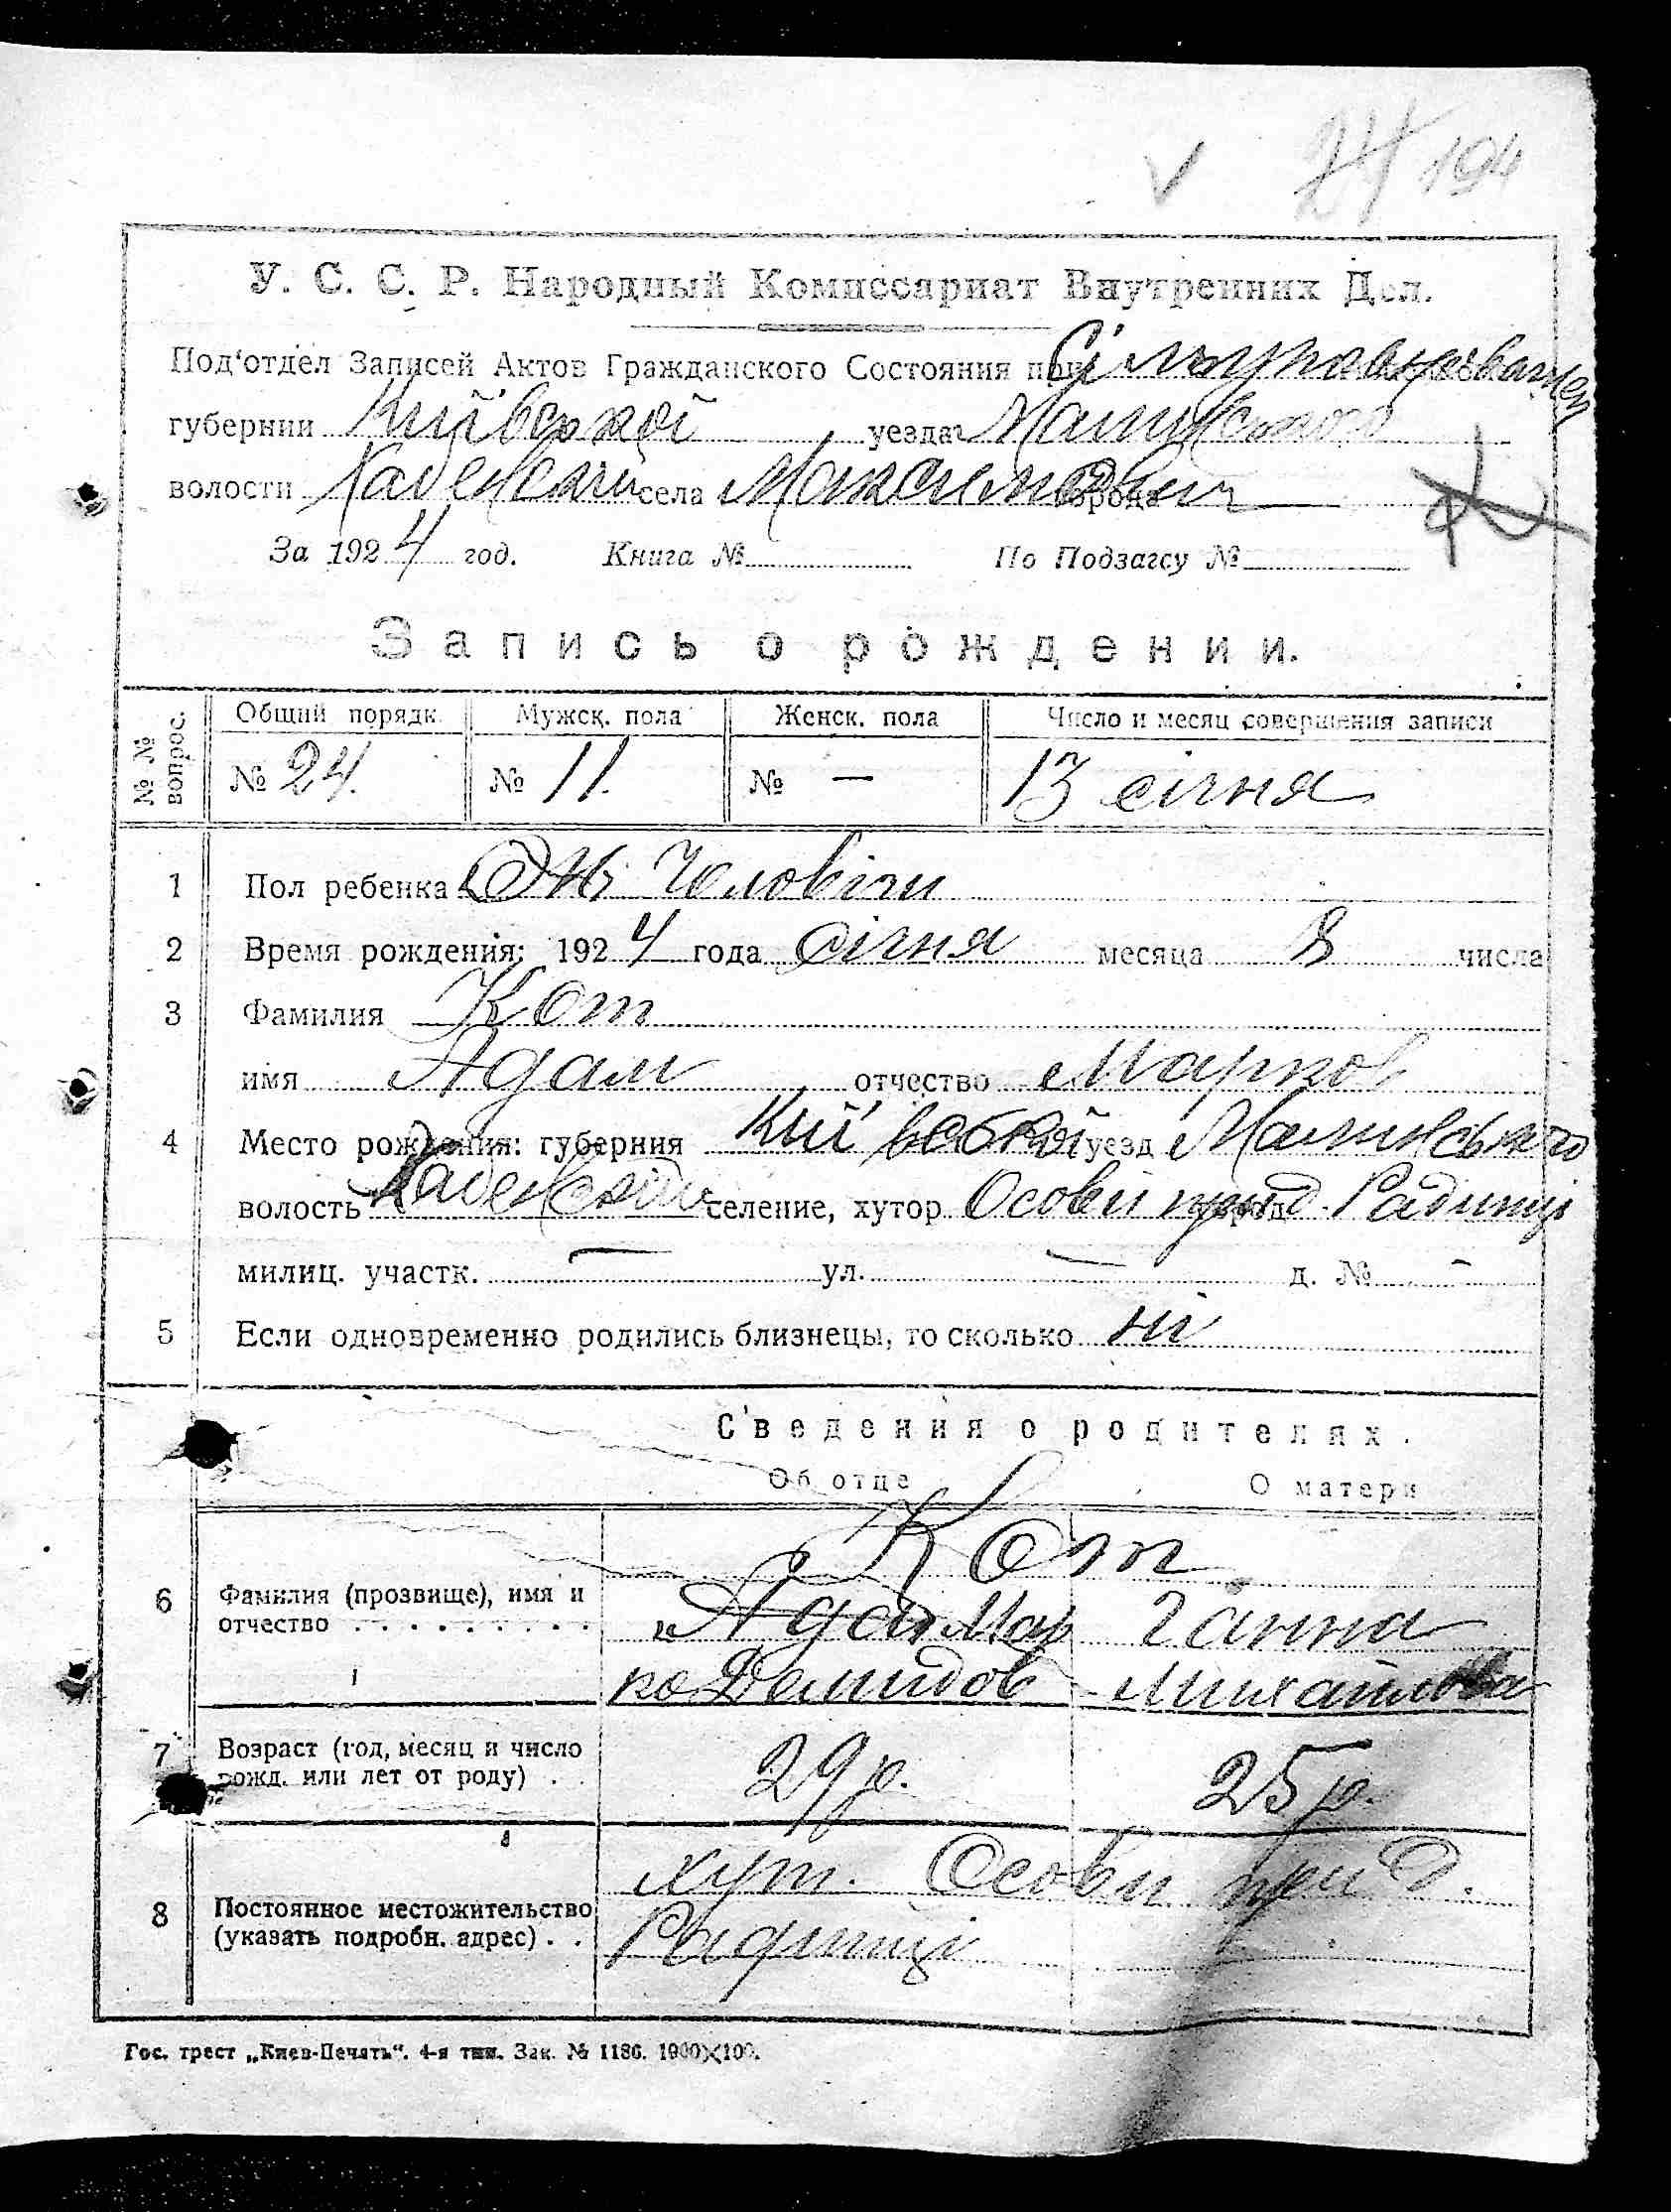 194
У. С. С. Р. Народный Комиссариат Внутренних Дел.
Под‘отдел Записей Актов Гражданского Состояния при
губернии Київської уезда Малинського
волости села Максимович города
За 1924 год. Книга № По Подзагсу №
Запись о рождении.
№ № вопрос. Общий порядк. Мужск. пола Женск. пола Число и месяц совершения записи
№ 24. № 11. № — 13 січня
1 Пол ребенка Чоловічи
2 Время рождения: 1924 года січня месяца 8 числа
3 Фамилия Кот
имя Адам отчество Марков
4 Место рождения: губерния Київської уезд Малинського
волость селение, хутор Особи при д. Радинці
милиц. участк. — ул. — д. № -
5 Если одновременно родились близнецы, то сколько ні
Сведения о родителях.
Об отце О матери
Кот
6 Фамилия (прозвище), имя и
отчество . . . . . . . . . Адам Мар Ганна
ко Демидов Михайлова
7 Возраст (год, месяц и число
рожд. или лет от роду) . . 29 р. 25 р.
хут. Особи при д.
8 Постоянное местожительство
(указать подробн. адрес) . . Радинці
Гос. трест „Киев-Печать“. 4-я тип. Зак. № 1186. 1000×100.